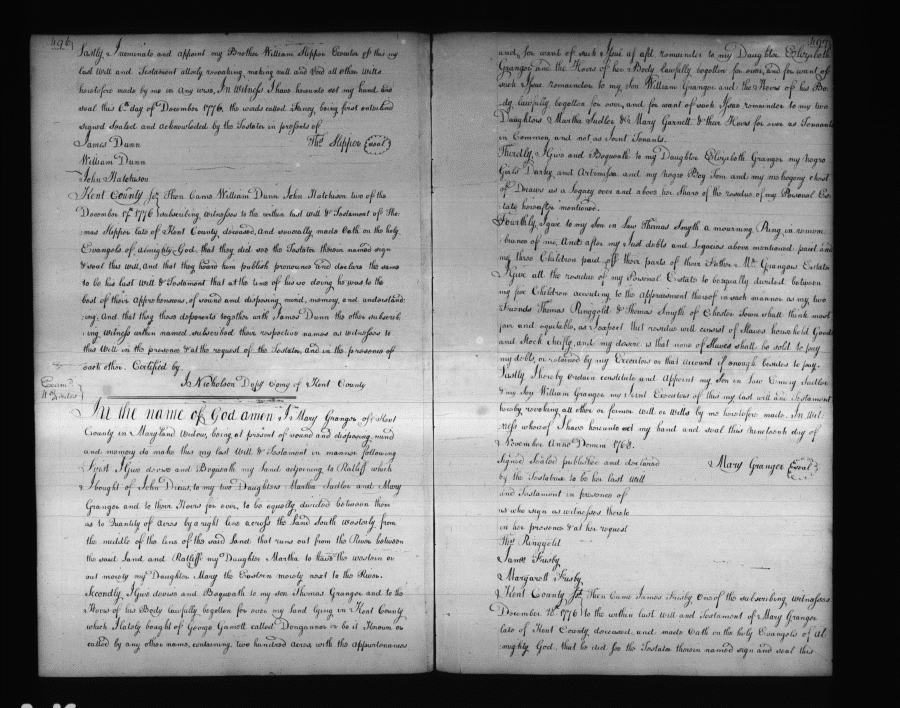 496
Lastly, I nominate and appoint my Brother William Slipper Executor of this my
last Will and Testament utterly revoking, making null and Void all other Wills
heretofore made by me in Any wise, In Witness I have hereunto set my hand and
seal this 6th day of December 1776, the words called Fancy, being first enterlined
signed Sealed and acknowledged by the Testator in presents of
James Dunn Thos Slipper (seal)
William Dunn
John Hatchison
Kent County Ss. Then Came William Dunn John Hatchison two of the
December 17th 1776 subscribing witnesses to the within last will & Testament of Tho-
mas Slipper late of Kent County, deceased, and severally made Oath on the holy
Evangels of almighty God, that they did see the Testator therein named sign
& seal this will, and that they heard him publish pronounce and declare the same
to be his last Will & Testament that at the time of his so doing he was to the
best of their Apprehensions, of sound and disposing mind, memory, and understand-
ing. And that they these deponents together with James Dunn the other subscrib-
ing witness within named, subscribed their respective names as witnesses to
this Will in the presence & at the request of the Testator And in the presence of
each other. Certified by
J Nicholson Depy Comy of Kent County
Exam
In the name of God amen I Mary Granger of Kent
County in Maryland Widow, being at present of sound and disposing mind
and memory do make this my last Will & Testament in manner following
First I Give devise and Bequeath my Land adjoining to Ratliff which
I bought of John Drews, to my two Daughters Martha Sadler and Mary
Granger and to their Heirs for ever, to be equally divided between them
as to Quantity of Acres by a right line across the Land South Westerly from
the middle of the line of the said Land that runs out from the River between
the said Land and Ratliff my Daughter Martha to have the western or
out moiety my Daughter Mary the Eastern moiety next to the River.
Secondly, I Give devise and Bequeath to my son Thomas Granger and to the
Heirs of his Body lawfully begotten for ever my land lying in Kent County
which I lately bought of George Garnett called or be it known or
called by any other name, containing two hundred Acres with the appurtenances
497
and, for want of such Issue of afd remainder to my Daughter Elizabeth
Granger and the Heirs of her Body lawfully begotten for ever, and for want of
such Issue remainder to my Son William Granger and the Heirs of his Bo-
dy lawfully begotten for ever, and for want of such Issue remainder to my two
Daughters Martha Sadler & Mary Garnett & their Heirs for ever as Tennants
in Common and not as Joint Tenants.
Thirdly, I Give and Bequeath to my Daughter Elizabeth Granger my negro
Girls Darky and Artemesia and my negro Boy Tom and my mohogony chest
of Draws as a Legacy over and above her Share of the residue of my Personal Es-
tate hereafter mentioned.
Fourthly, I give to my Son in Law Thomas Smyth a mourning Ring in remem-
brance of me. And after my Just debts and Legacies above mentioned paid and
my three Children paid off their parts of their Father Mr. Grangers Estate
I Give all the residue of my Personal Estate to be equally divided between
my five Children according to the Appraisment thereof in such manner as my two
Friends Thomas Ringgold & Thomas Smyth of Chester Town shall think most
fair and equitable, as I expect that residue will consist of Slaves household Goods
and Stock chiefly, and my desire is that none of Slaves shall be sold to pay
my debts, or retained by my Executors on that account if enough besides to pay.
Lastly I hereby ordain constitute and Appoint my Son in Law Emery Sudler
& my Son William Granger my Joint Executors of this my last will and Testament
hereby revoking all other or former Will or Wills by me heretofore made. In Wit-
ness whereof I have hereunto set my hand and seal this nineteenth day of
November Anno Domini 1768.
signed Sealed published and declared Mary Granger (Seal)
by the Testatrix to be her last Will
and Testament in presence of
us who sign as witnesses thereto
in her presence & at her request
Thos Ringgold
James Frisby
Margarett Frisby
Kent County Ss. Then Came James Frisby One of the subscribing witnesses
December 1776 to the within last will and Testament of Mary Granger
late of Kent County deceased, and made Oath on the holy Evangels of al-
mighty God, that he did see the Testator therein named sign and seal this